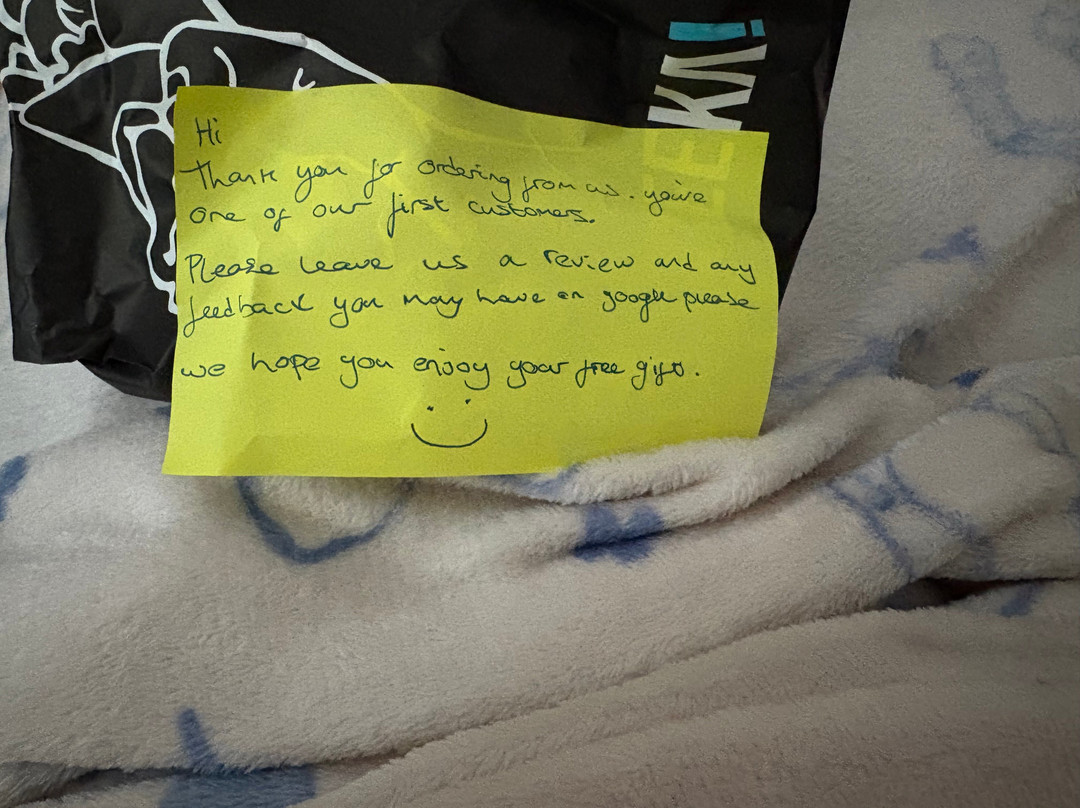 EKA!
Hi
Thank you for ordering from us. you're
one of our first customers.
Please leave us a review and any
feedback you may have on google please
we hope you enjoy your free gift.